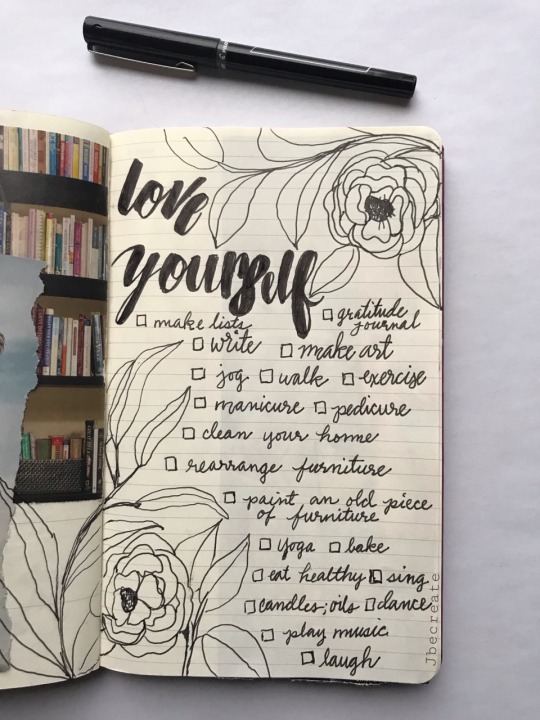 love
yourself
☐ make lists ☐ gratitude journal
☐ write ☐ make art
☐ jog ☐ walk ☐ exercise
☐ manicure ☐ pedicure
☐ clean your home
☐ rearrange furniture
☐ paint an old piece
of furniture
☐ yoga ☐ bake
☐ eat healthy ☐ sing
☐ candles; oils ☐ dance
☐ play music
☐ laugh
Jbecreate